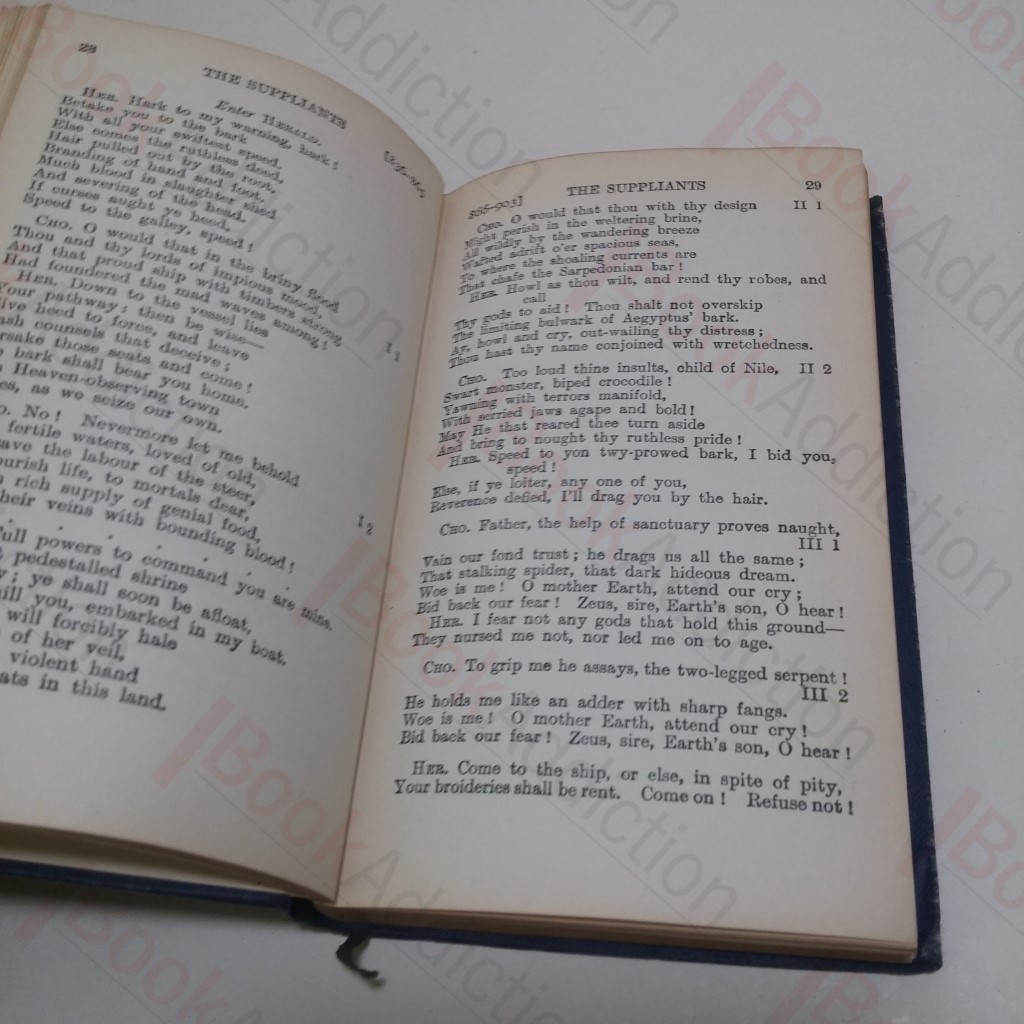 28
THE SUPPLIANTS
[836–865
Enter HERALD.
HER. Hark to my warning, hark!
Betake you to the bark
With all your swiftest speed,
Else comes the ruthless deed,
Hair pulled out by the root,
Branding of hand and foot,
Much blood in slaughter shed
And severing of the head.
If curses aught ye heed,
Speed to the galley, speed!
CHO. O would that in the briny flood I 1
Thou and thy lords of impious mood,
And that proud ship with timbers strong,
Had foundered the mad waves among!
HER. Down to the vessel lies
Your pathway; then be wise—
ive heed to force, and leave
ash counsels that deceive;
rsake those seats and come!
bark shall bear you home.
Heaven-observing town
es, as we seize our own.
O. No! Nevermore let me behold I 2
fertile waters, loved of old,
ave the labour of the steer,
ourish life, to mortals dear,
rich supply of genial food,
heir veins with bounding blood!
. . . .
full powers to command you are mine.
pedestalled shrine
; ye shall soon be afloat,
will you, embarked in my boat.
will forcibly hale
of her veil,
violent hand
ats in this land.
866–903]
THE SUPPLIANTS
29
CHO. O would that thou with thy design II 1
Might perish in the weltering brine,
All wildly by the wandering breeze
Wafted adrift o'er spacious seas,
To where the shoaling currents are
That chafe the Sarpedonian bar!
HER. Howl as thou wilt, and rend thy robes, and
call
Thy gods to aid! Thou shalt not overskip
The limiting bulwark of Aegyptus' bark.
Ay, howl and cry, out-wailing thy distress;
Thou hast thy name conjoined with wretchedness.
CHO. Too loud thine insults, child of Nile, II 2
Swart monster, biped crocodile!
Yawning with terrors manifold,
With serried jaws agape and bold!
May He that reared thee turn aside
And bring to nought thy ruthless pride!
HER. Speed to yon twy-prowed bark, I bid you,
speed!
Else, if ye loiter, any one of you,
Reverence defied, I'll drag you by the hair.
CHO. Father, the help of sanctuary proves naught,
III 1
Vain our fond trust; he drags us all the same;
That stalking spider, that dark hideous dream.
Woe is me! O mother Earth, attend our cry;
Bid back our fear! Zeus, sire, Earth's son, O hear!
HER. I fear not any gods that hold this ground—
They nursed me not, nor led me on to age.
CHO. To grip me he assays, the two-legged serpent!
III 2
He holds me like an adder with sharp fangs.
Woe is me! O mother Earth, attend our cry!
Bid back our fear! Zeus, sire, Earth's son, O hear!
HER. Come to the ship, or else, in spite of pity,
Your broideries shall be rent. Come on! Refuse not!
BookAddiction